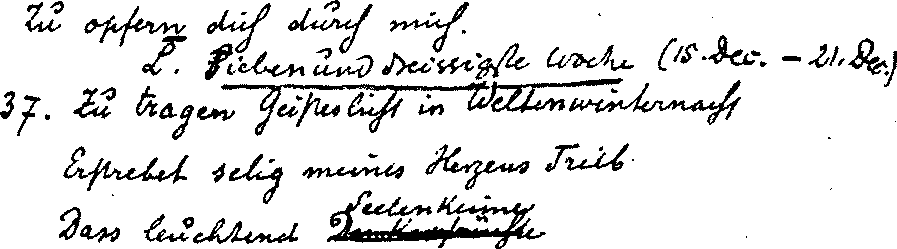 Zu opfern dich durch mich.
L. Siebenunddreissigste Woche (15. Dec. – 21. Dec.)
37. Zu tragen Geisteslicht in Weltenwinternacht
Erstrebet selig meines Herzens Trieb.
Seelenkeime
Dass leuchtend